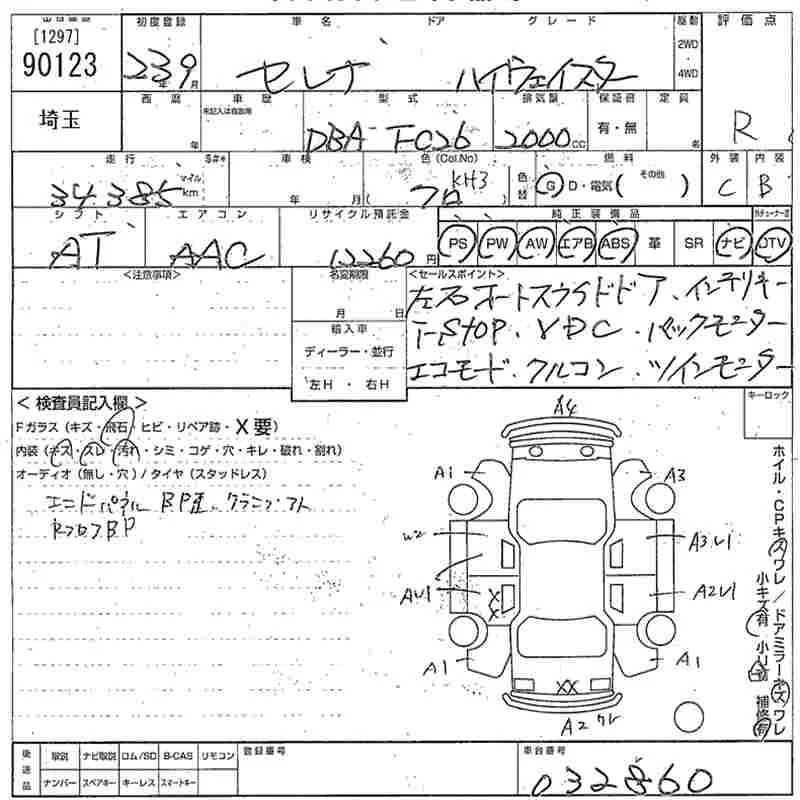 [1297]
90123
初度登録 車名 ドア グレード 駆動 評価点
239 年 月 セレナ ハイウェイスター 2WD 4WD
埼玉
西暦 車歴 型式 排気量 保証書 定員
未記入は自家用
年 DBA FC26 2000 CC 有・無 名 R
走行 車検 色(Col.No) 燃料 外装 内装
34385 マイル km 年 月 クロ KH3 色替 G D・電気( その他 ) C B
シフト エアコン リサイクル預託金 純正装備品
AT AAC 12260 円 PS PW AW エアB ABS 革 SR ナビ DTV
<注意事項> 名変期限 <セールスポイント>
月 日
左右オートスライドドア、インテリキー
I-STOP、VDC、バックモニター
エコモード、クルコン、ツインモニター
輸入車
ディーラー・並行
左H ・ 右H
<検査員記入欄> キーロック
Fガラス(キズ・飛石・ヒビ・リペア跡・X要)
内装(キズ・スレ・汚れ・シミ・コゲ・穴・キレ・破れ・割れ)
オーディオ(無し・穴)/タイヤ(スタッドレス)
エンドパネル BP
RフロアBP
A4
A1 A3
U2 A3U1
AU1 X X A2U1
A1 A1
XX
A2 ワレ
ホイル・CPキズワレ/ドアミラーキズワレ
小キズ有 小U有 補修有
後送品 取説 ナビ取説 ロム/SD B-CAS リモコン 登録番号 車台番号
ナンバー スペアキー キーレス スマートキー
032860